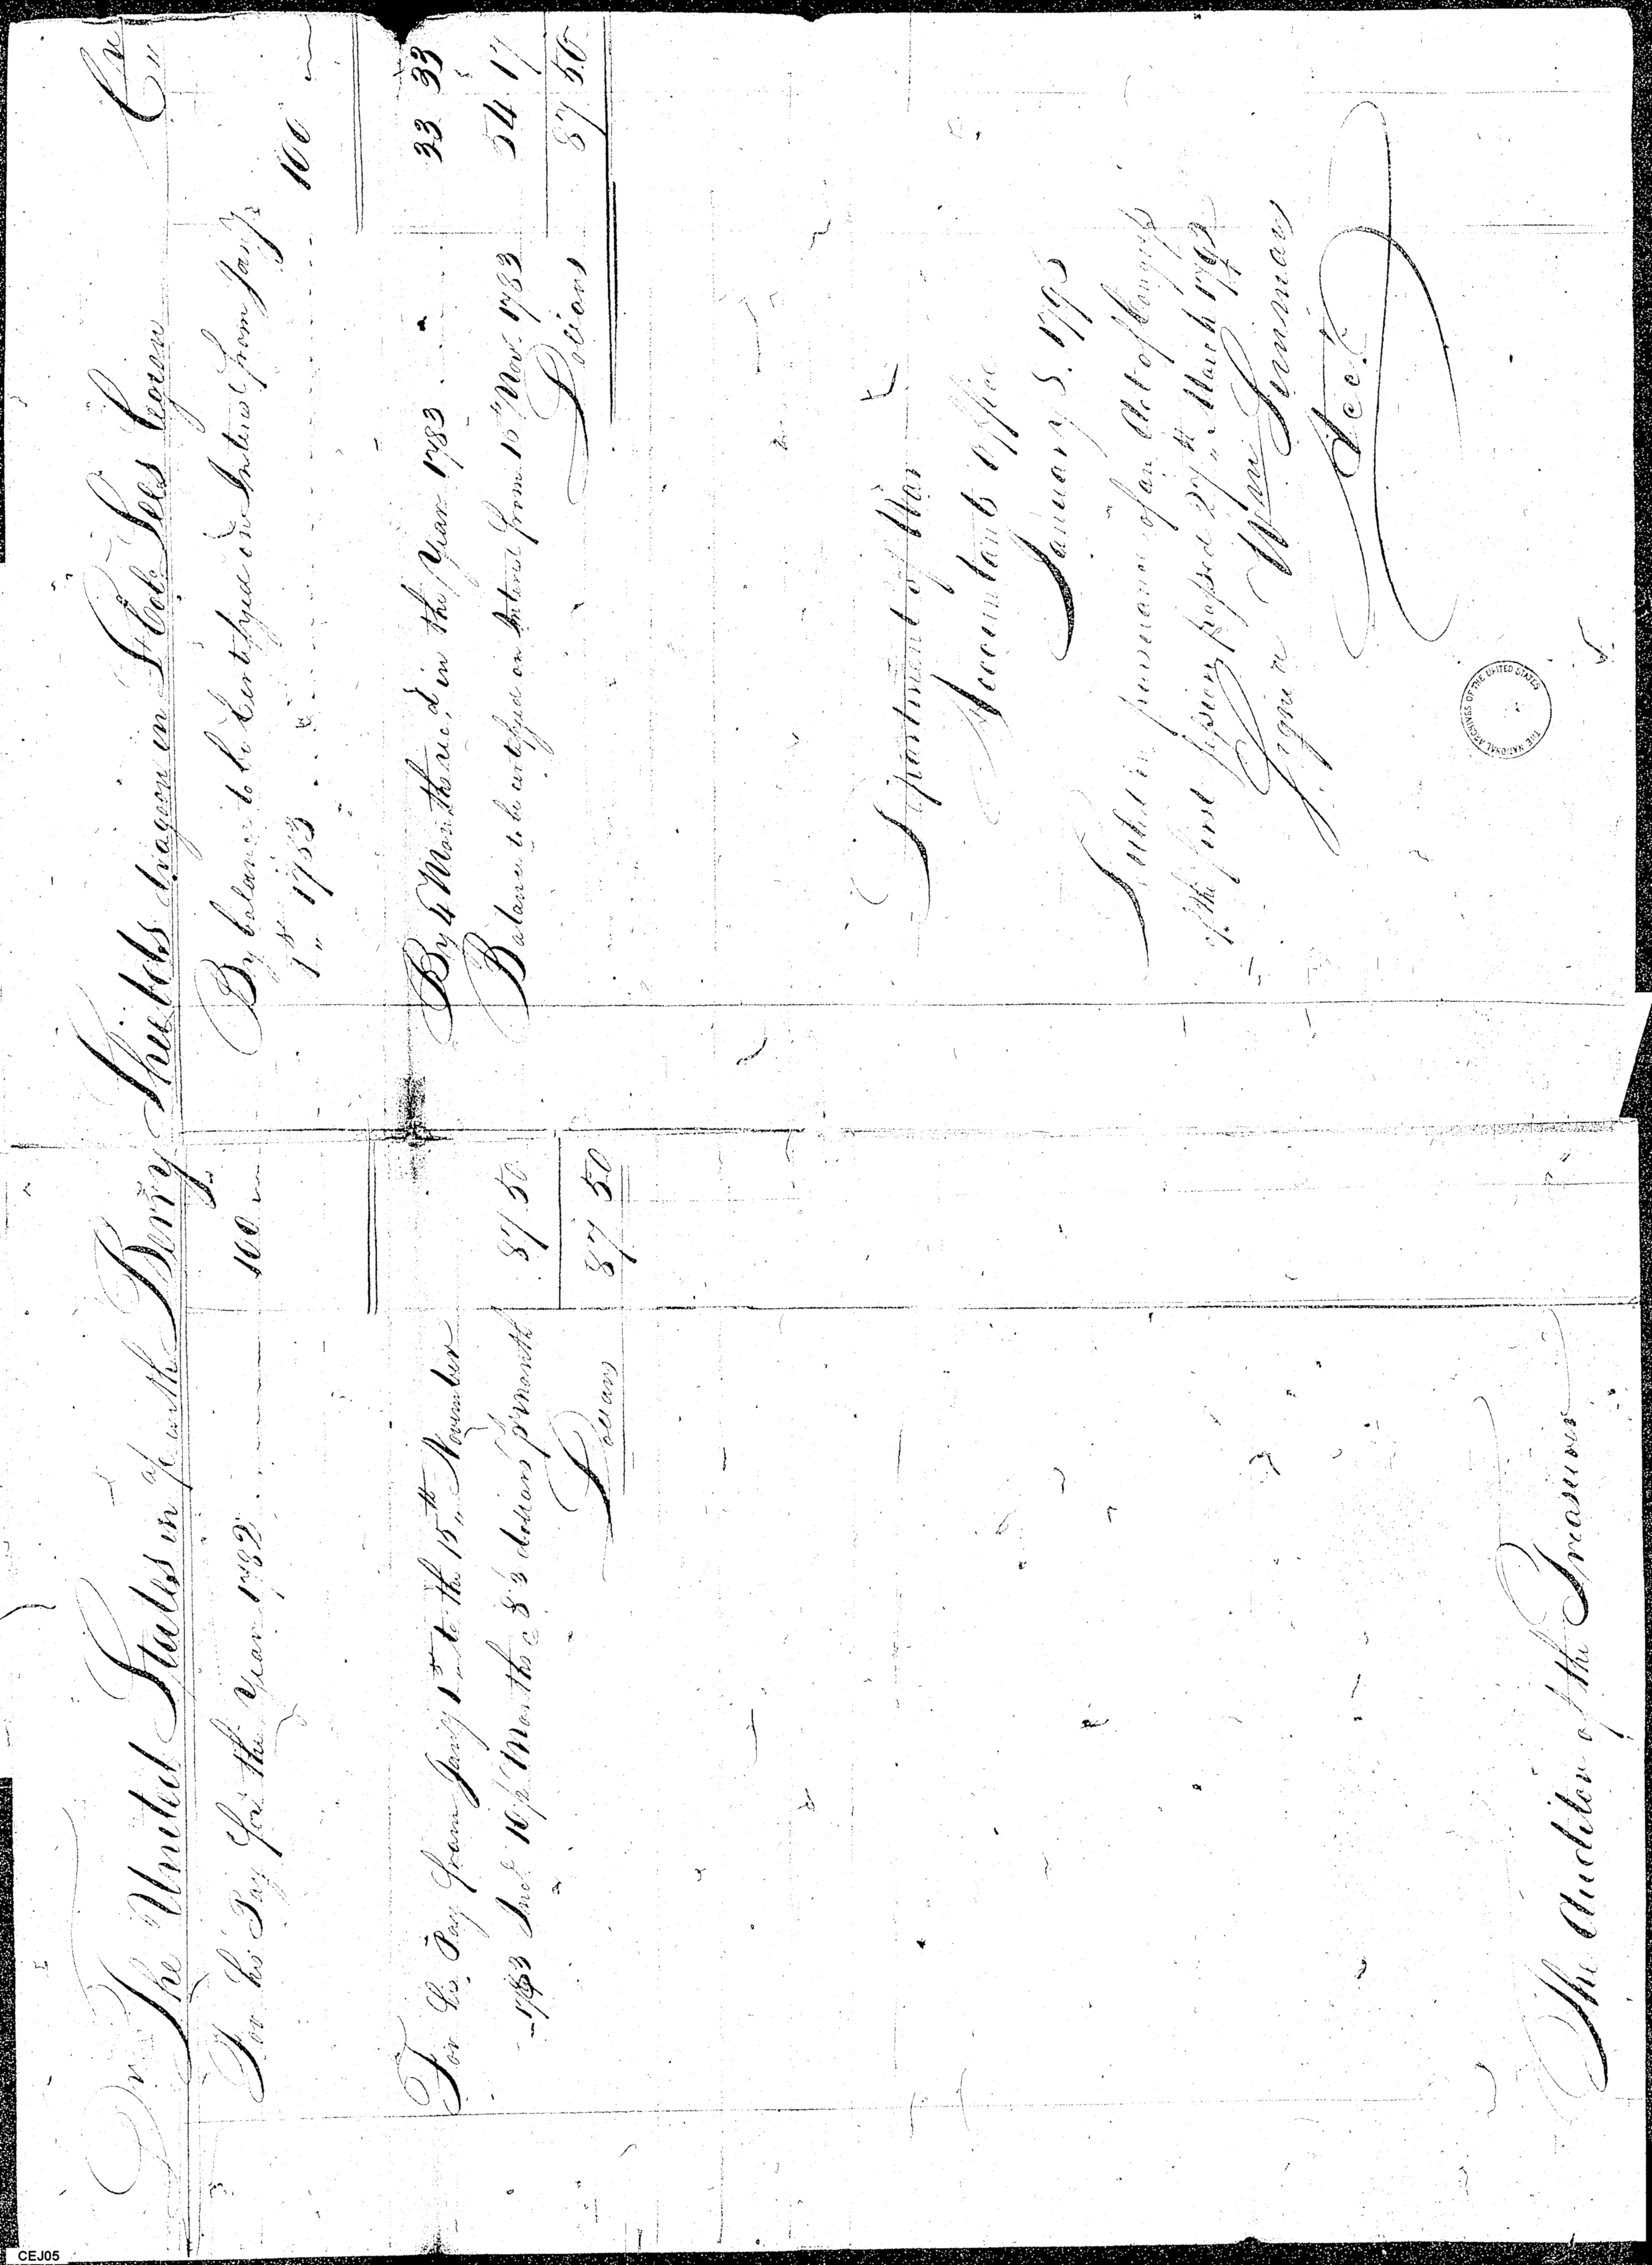 Dr. The United States in a/c with Berry Shields dragoon in Lt. Col. Lees Legion Cr.
For his Pay for the Year 1782 100
For his Pay from Jany 1st to the 15th November
1783 Incl. 10½ Months @ 8⅓ dollars pr month 87 50
Dollars 87 50
By balance to be Certifyed on Interest from Jany
1st 1783 100
By 4 Months rec.d in the Year 1783 33 33
Balance to be certifyed on Interest from 15th Nov. 1783 54 17
Dollars 87 50
Department of War
Accountants Office
January 5. 1795
Settled in pursuance of an Act of Congress
of the first session passed 27th March 1792
Signed Wm Simmons
Acct.
The Auditor of the Treasury
THE NATIONAL ARCHIVES OF THE UNITED STATES
CEJ05